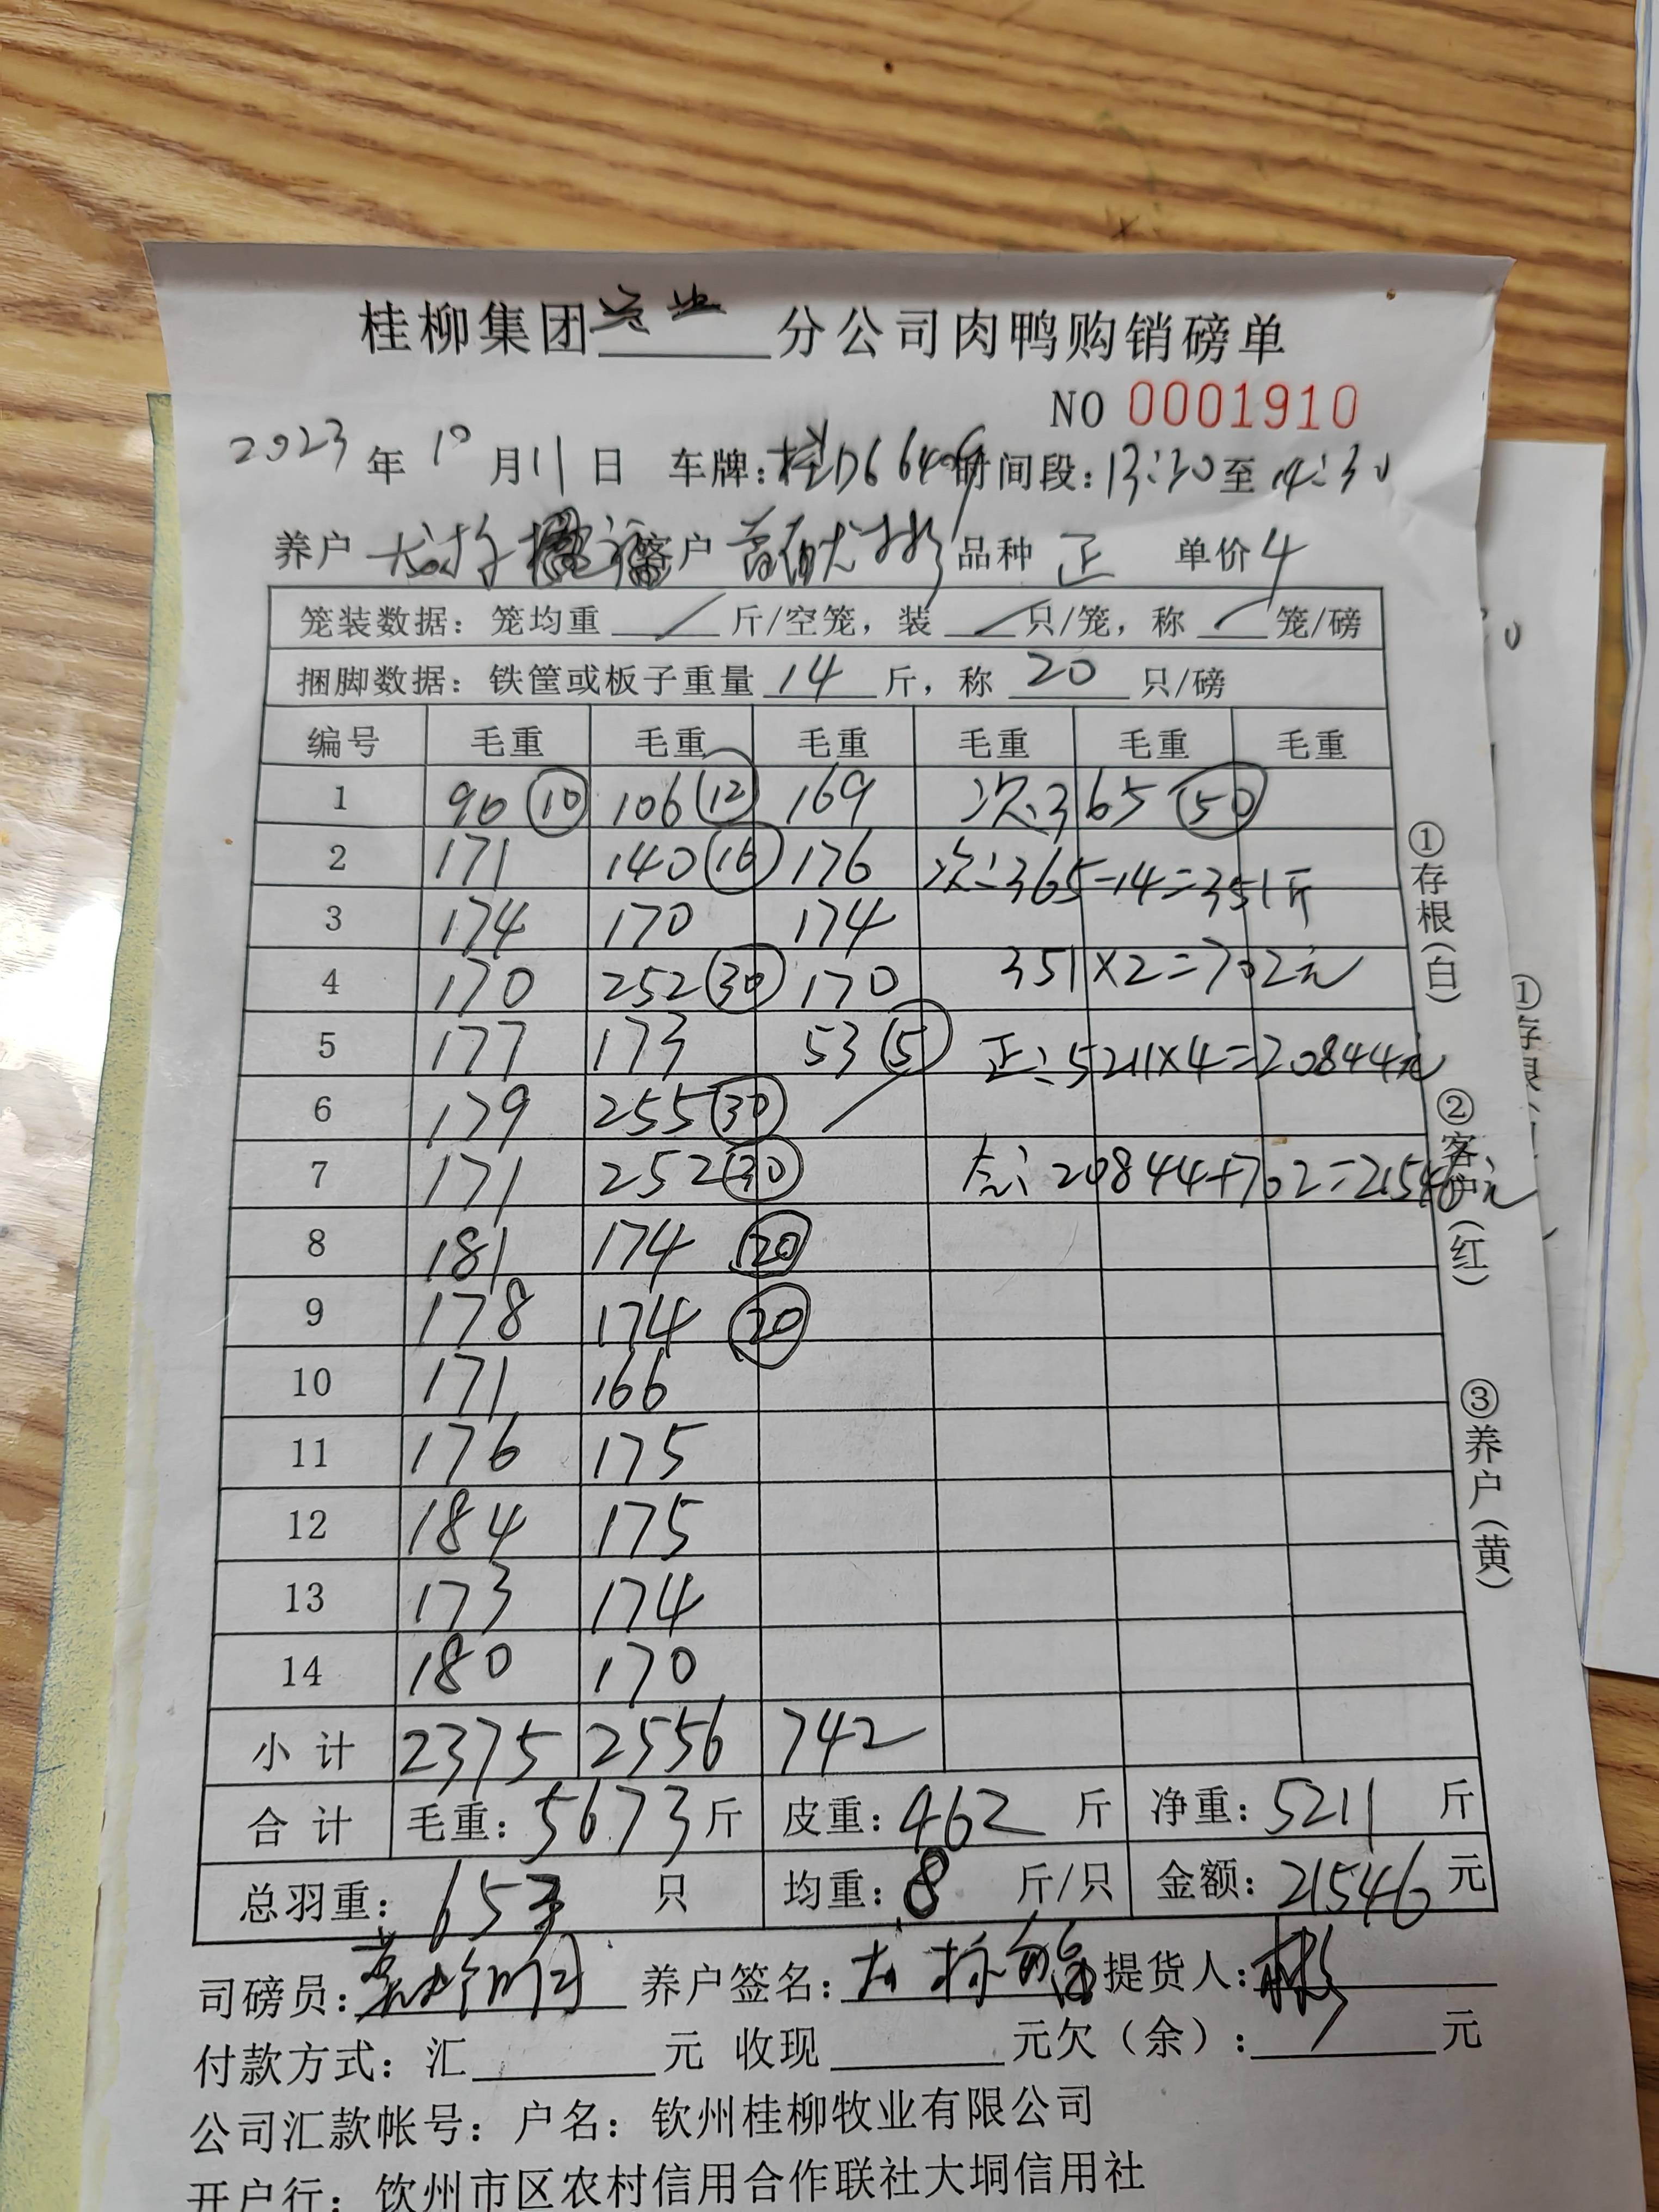 桂柳集团 分公司肉鸭购销磅单
NO 0001910
2023年10月11日 车牌: 时间段:13:30至14:30
养户 客户 品种 正 单价4
笼装数据：笼均重 / 斤/空笼，装 / 只/笼，称 / 笼/磅
捆脚数据：铁筐或板子重量 14 斤，称 20 只/磅
编号 毛重 毛重 毛重 毛重 毛重 毛重
1 90 (10) 106 (12) 169 次:365 (50)
2 171 140 (16) 176 次:365-14=351斤
3 174 170 174
4 170 252 (30) 170 351×2=702元
5 177 173 53 (5) 正:5211×4=20844元
6 179 255 (30) /
7 171 252 (30) 合:20844+702=21546元
8 181 174 (20)
9 178 174 (20)
10 171 166
11 176 175
12 184 175
13 173 174
14 180 170
小计 2375 2556 742
合计 毛重:5673斤 皮重:462斤 净重:5211斤
总羽重: 只 均重:8斤/只 金额:21546元
司磅员: 养户签名: 提货人:
付款方式：汇 元 收现 元欠（余）: 元
公司汇款帐号：户名：钦州桂柳牧业有限公司
开户行：钦州市区农村信用合作联社大垌信用社
①存根（白）
②客户（红）
③养户（黄）